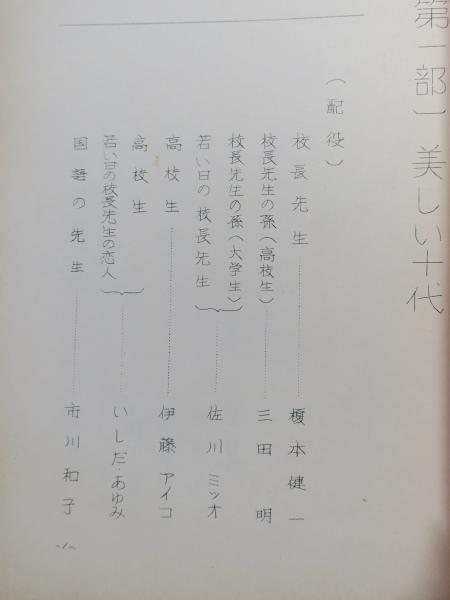 第一部） 美しい十代
（配役）
校長先生……榎本健一
校長先生の孫（高校生）……三田明
校長先生の孫（大学生）
若い日の校長先生｝……佐川ミツオ
高校生……伊藤アイコ
高校生
若い日の校長先生の恋人｝……いしだ・あゆみ
国語の先生……市川和子
-1-